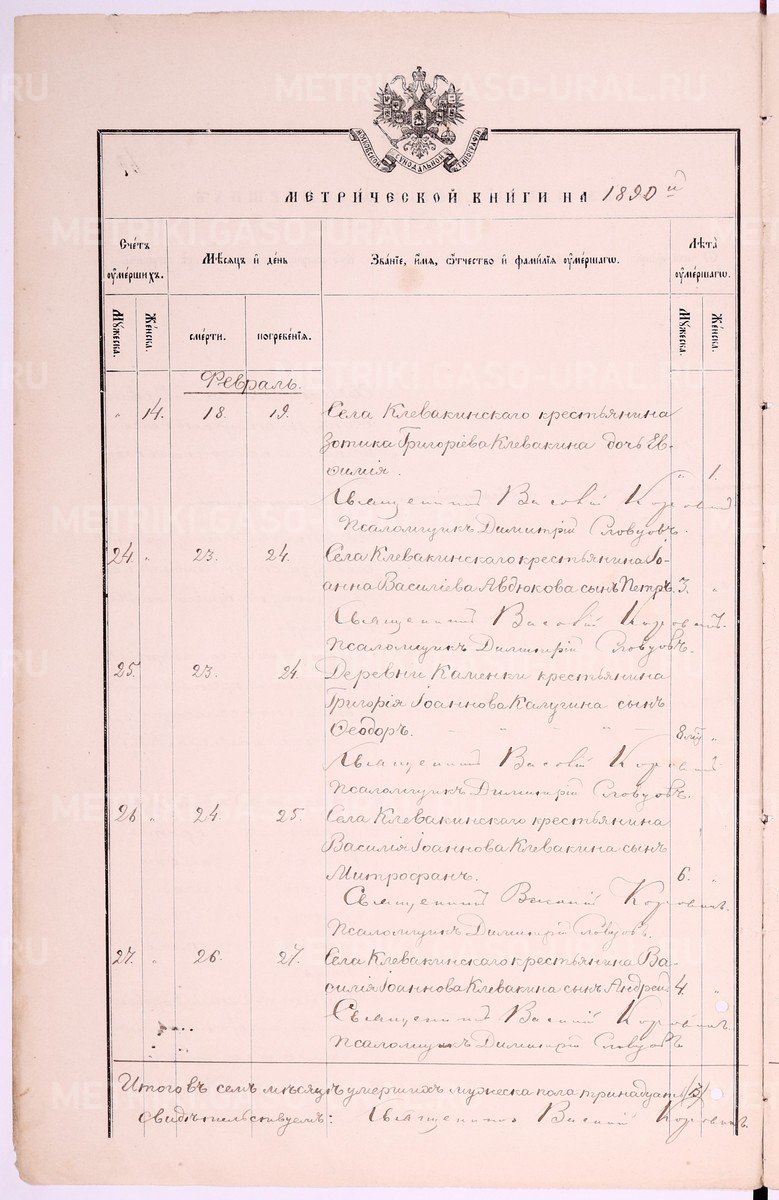 МОСКОВСКОЙ СѴНОДАЛЬНОЙ ТИПОГРАФІИ
МЕТРИ́ЧЕСКОЙ КНИ́ГИ НА 1890 й
Сче́тъ оуме́ршихъ.
Мꙋ́жеска.
Же́нска.
Мѣ́сяцъ и҆ де́нь
сме́рти.
погребе́нїя.
Зва́нїе, и҆́мя, ѻ҆́тчество и҆ фами́лїя оуме́ршагѡ.
Лѣ́та оуме́ршагѡ.
Мꙋ́жеска.
Же́нска.
Февраль.
" 14. 18. 19. Села Клевакинскаго крестьянина
Зотика Григоріева Клевакина дочь Ев-
фимія. " 1.
Священникъ Василій Коровинъ
Псаломщикъ Димитрій Словцовъ.
24. " 23. 24. Села Клевакинскаго крестьянина Іо-
анна Василіева Авдюкова сынъ Петръ. 3. "
Священникъ Василій Коровинъ.
Псаломщикъ Димитрій Словцовъ.
25. 23. 24. Деревни Каменки крестьянина
Григорія Іоаннова Калугина сынъ
Ѳеодоръ. 8 "
Священникъ Василій Коровинъ
Псаломщикъ Димитрій Словцовъ.
26 " 24. 25. Села Клевакинскаго крестьянина
Василія Іоаннова Клевакина сынъ
Митрофанъ. 6. "
Священникъ Василій Коровинъ.
Псаломщикъ Димитрій Словцовъ.
27. " 26. 27. Села Клевакинскаго крестьянина Ва-
силія Іоаннова Клевакина сынъ Андрей 4. "
Священникъ Василій Коровинъ.
Псаломщикъ Димитрій Словцовъ
Итого въ семъ мѣсяцѣ умершихъ мужеска пола тринадцать
Свидѣтельствуемъ: Священникъ Василій Коровинъ.
METRIKI.GASO-URAL.RU